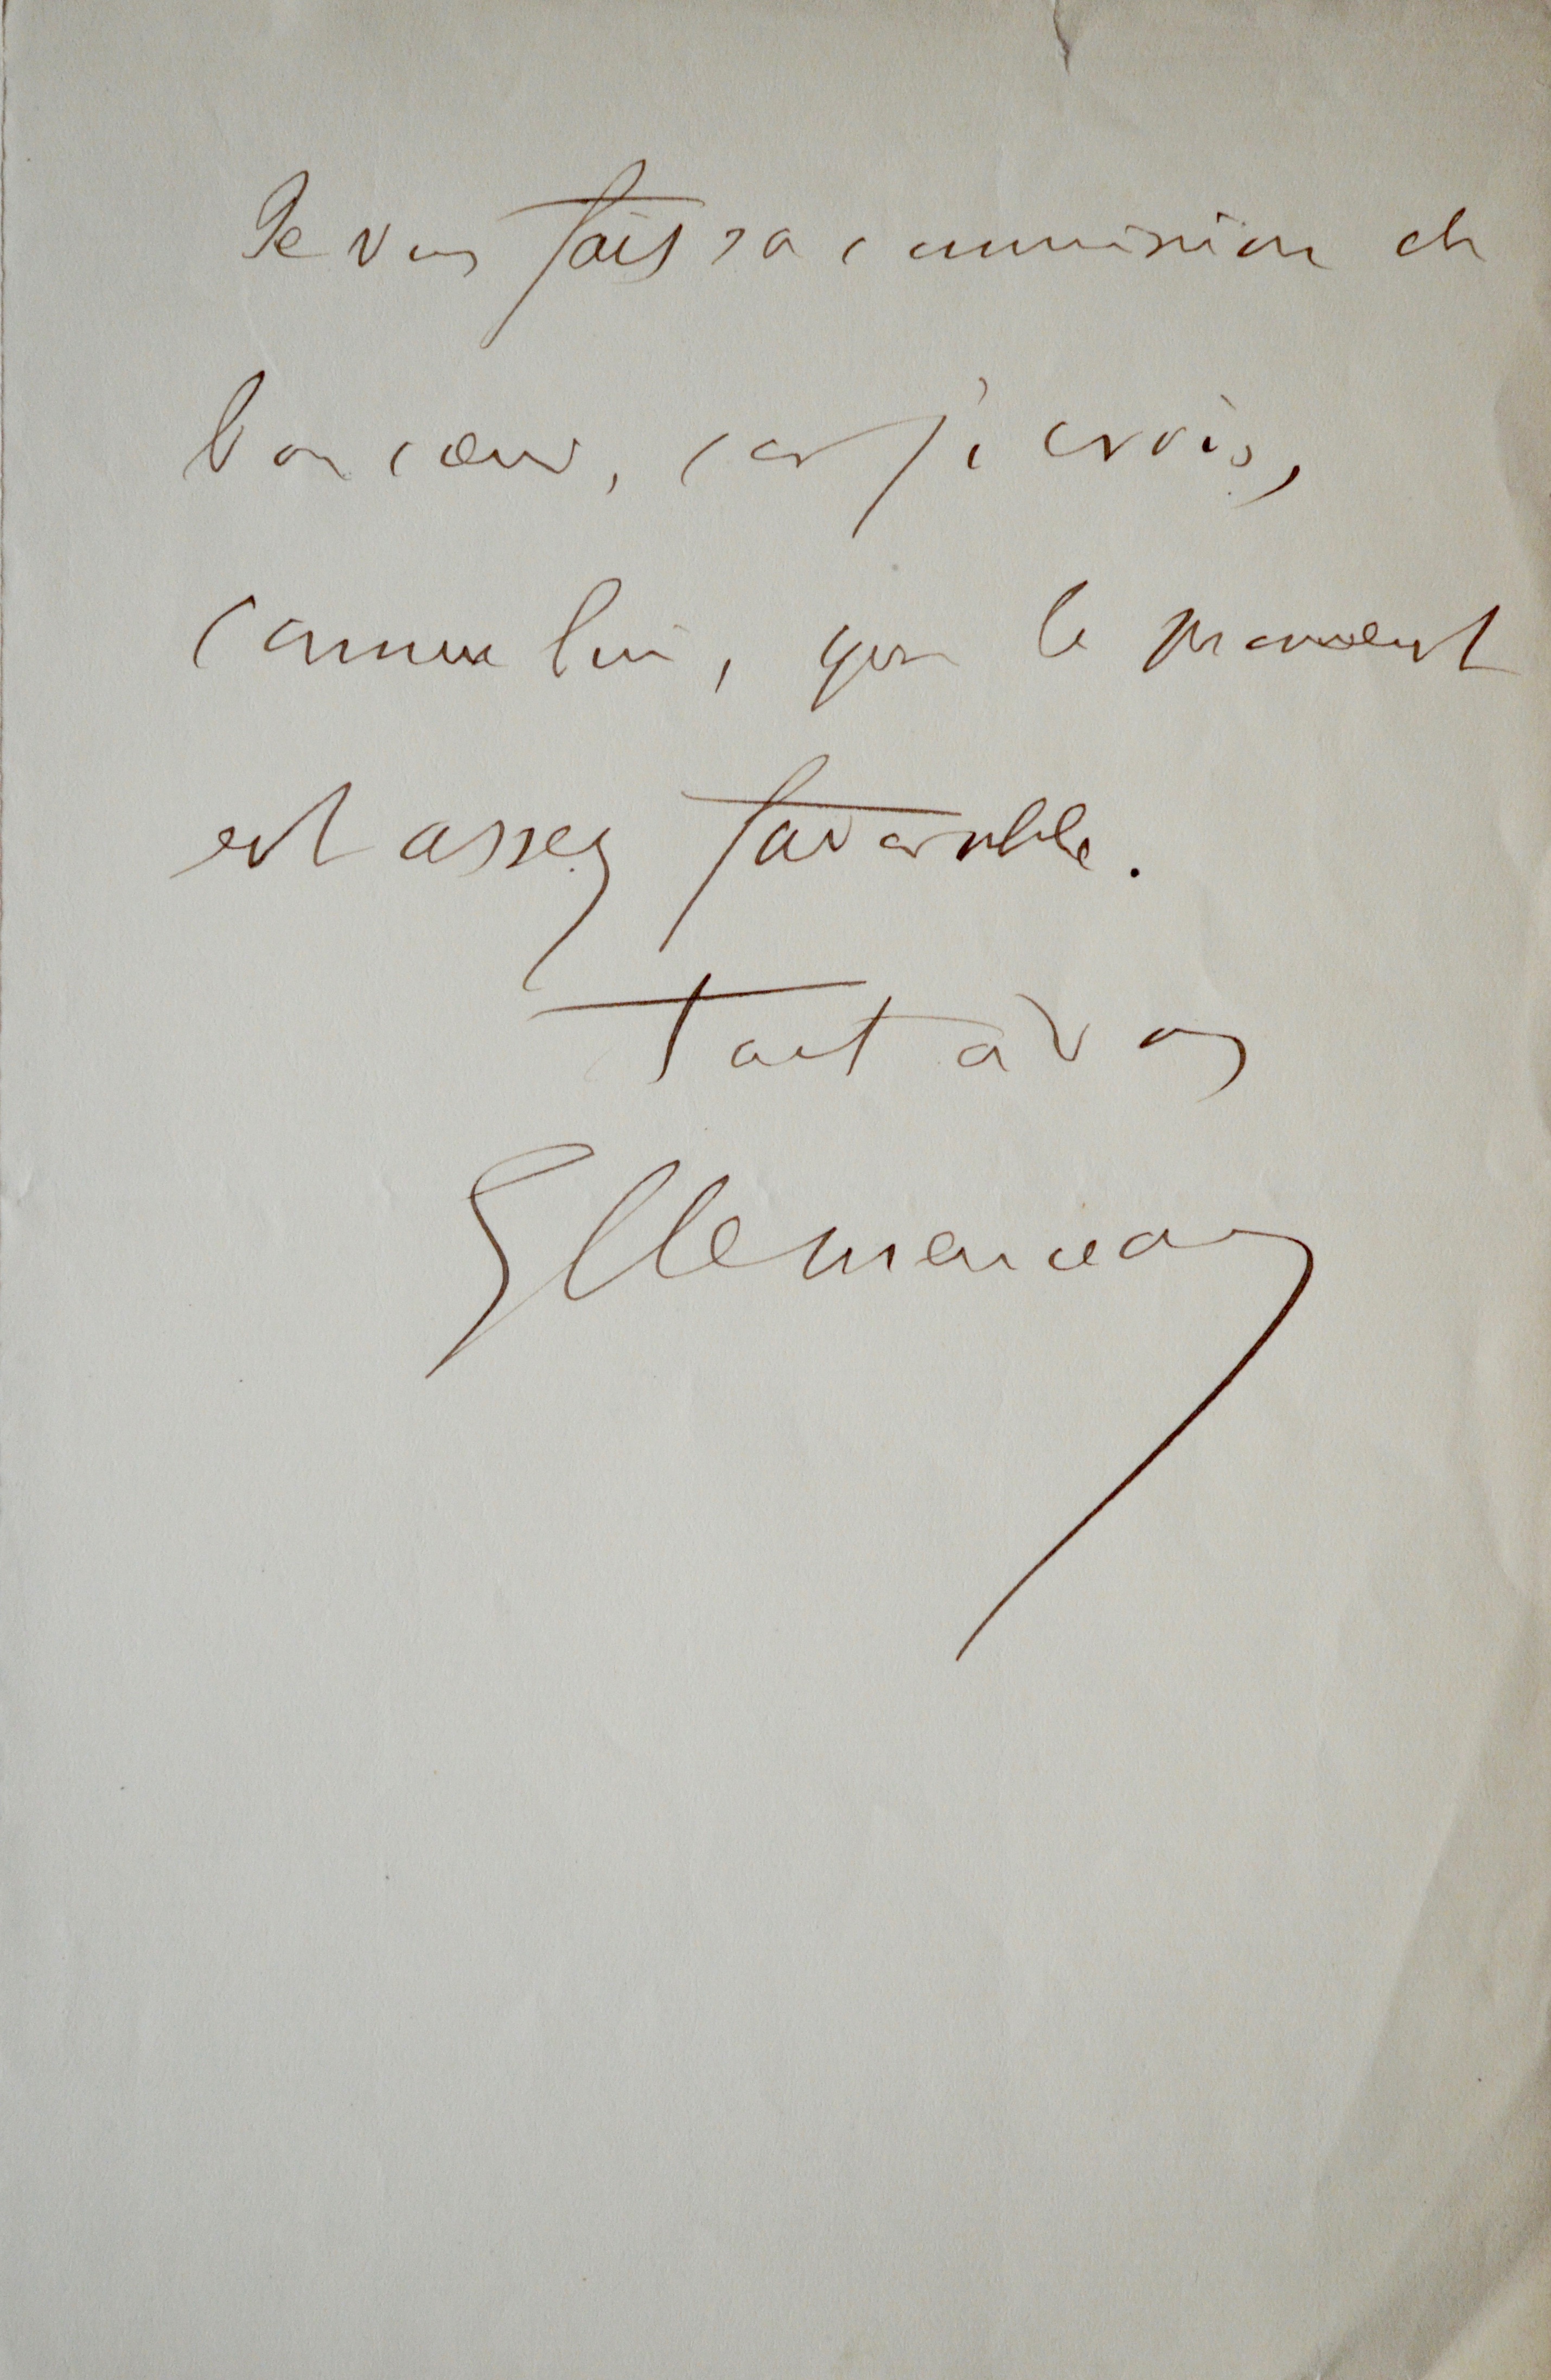 Je vous fais sa commission de
bon cœur, car je crois,
comme lui, que le moment
est assez favorable.
Tout à vous
GClemenceau